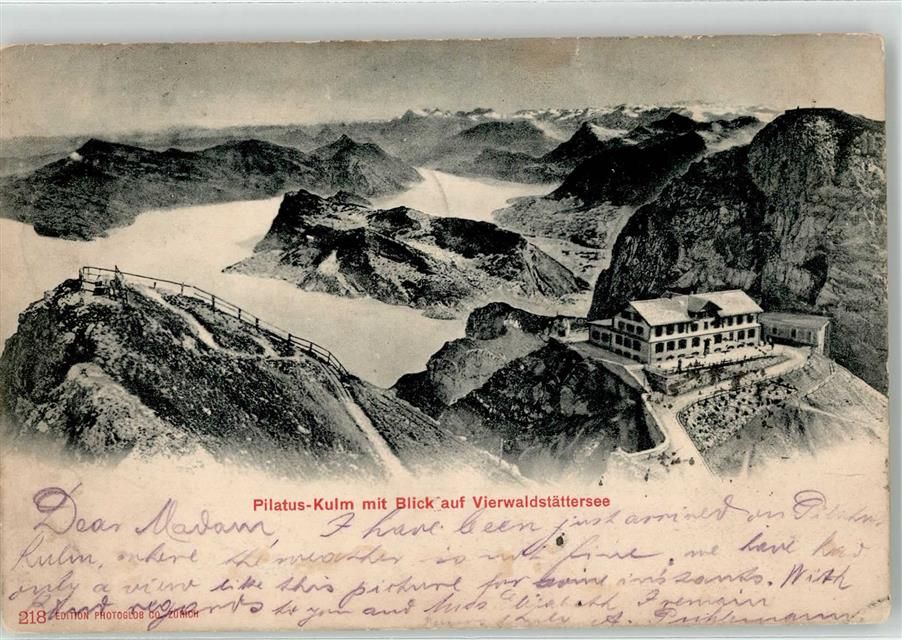 Pilatus-Kulm mit Blick auf Vierwaldstättersee
Dear Madam, I have been just arrived on Pilatus
Kulm, where the weather is not fine, we have had
only a view like this picture for some instants. With
kind regards to you and Miss Elizabeth, I remain
yours truly A.
218 EDITION PHOTOGLOB CO. ZÜRICH